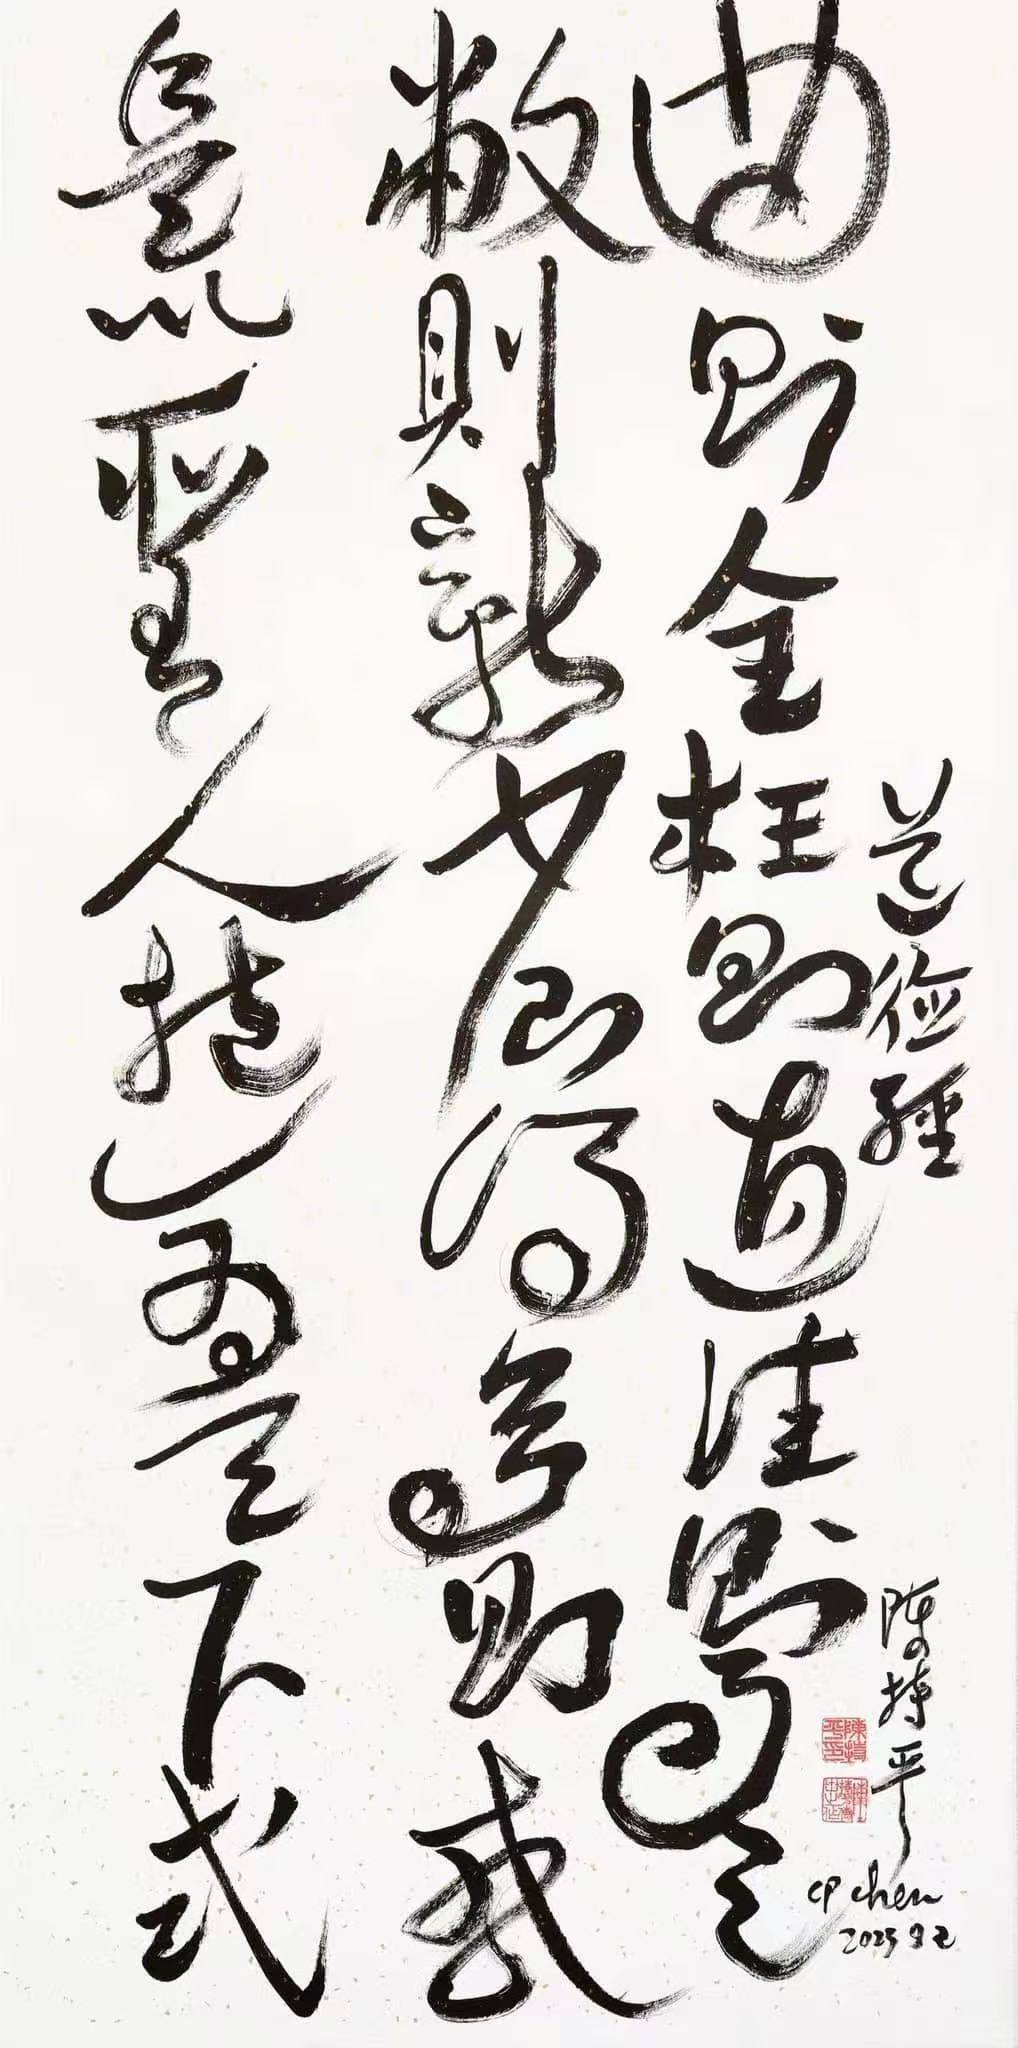 曲则全枉则直洼则盈
敝則新少則得多则惑
是以聖人抱一為天下式
道德經
陈持平
CP chen
2025 9 2